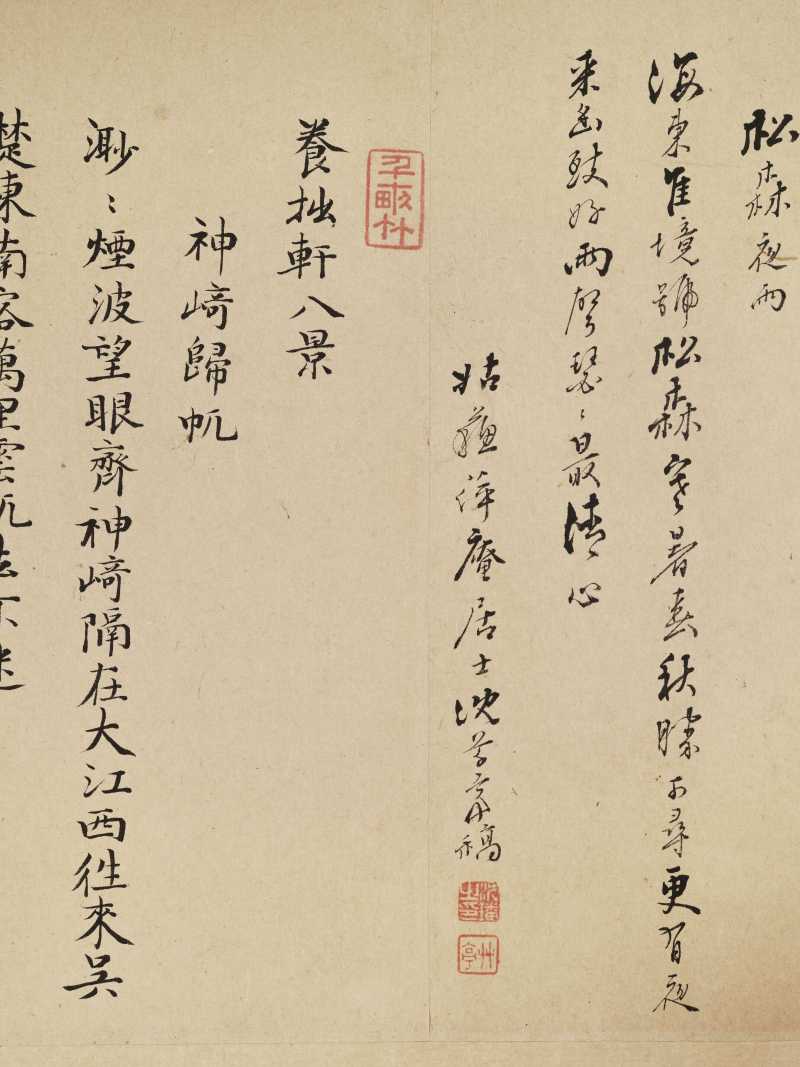 松森夜雨
海東佳境號松森寒暑春秋勝可尋更有夜
來幽致好雨聲瑟〻最清心
姑蘇萍庵居士沈 稿
艸亭
千畝竹
養拙軒八景
神﨑歸帆
渺〻煙波望眼齊神﨑隔在大江西往來吳
楚東南客萬里雲帆去不迷